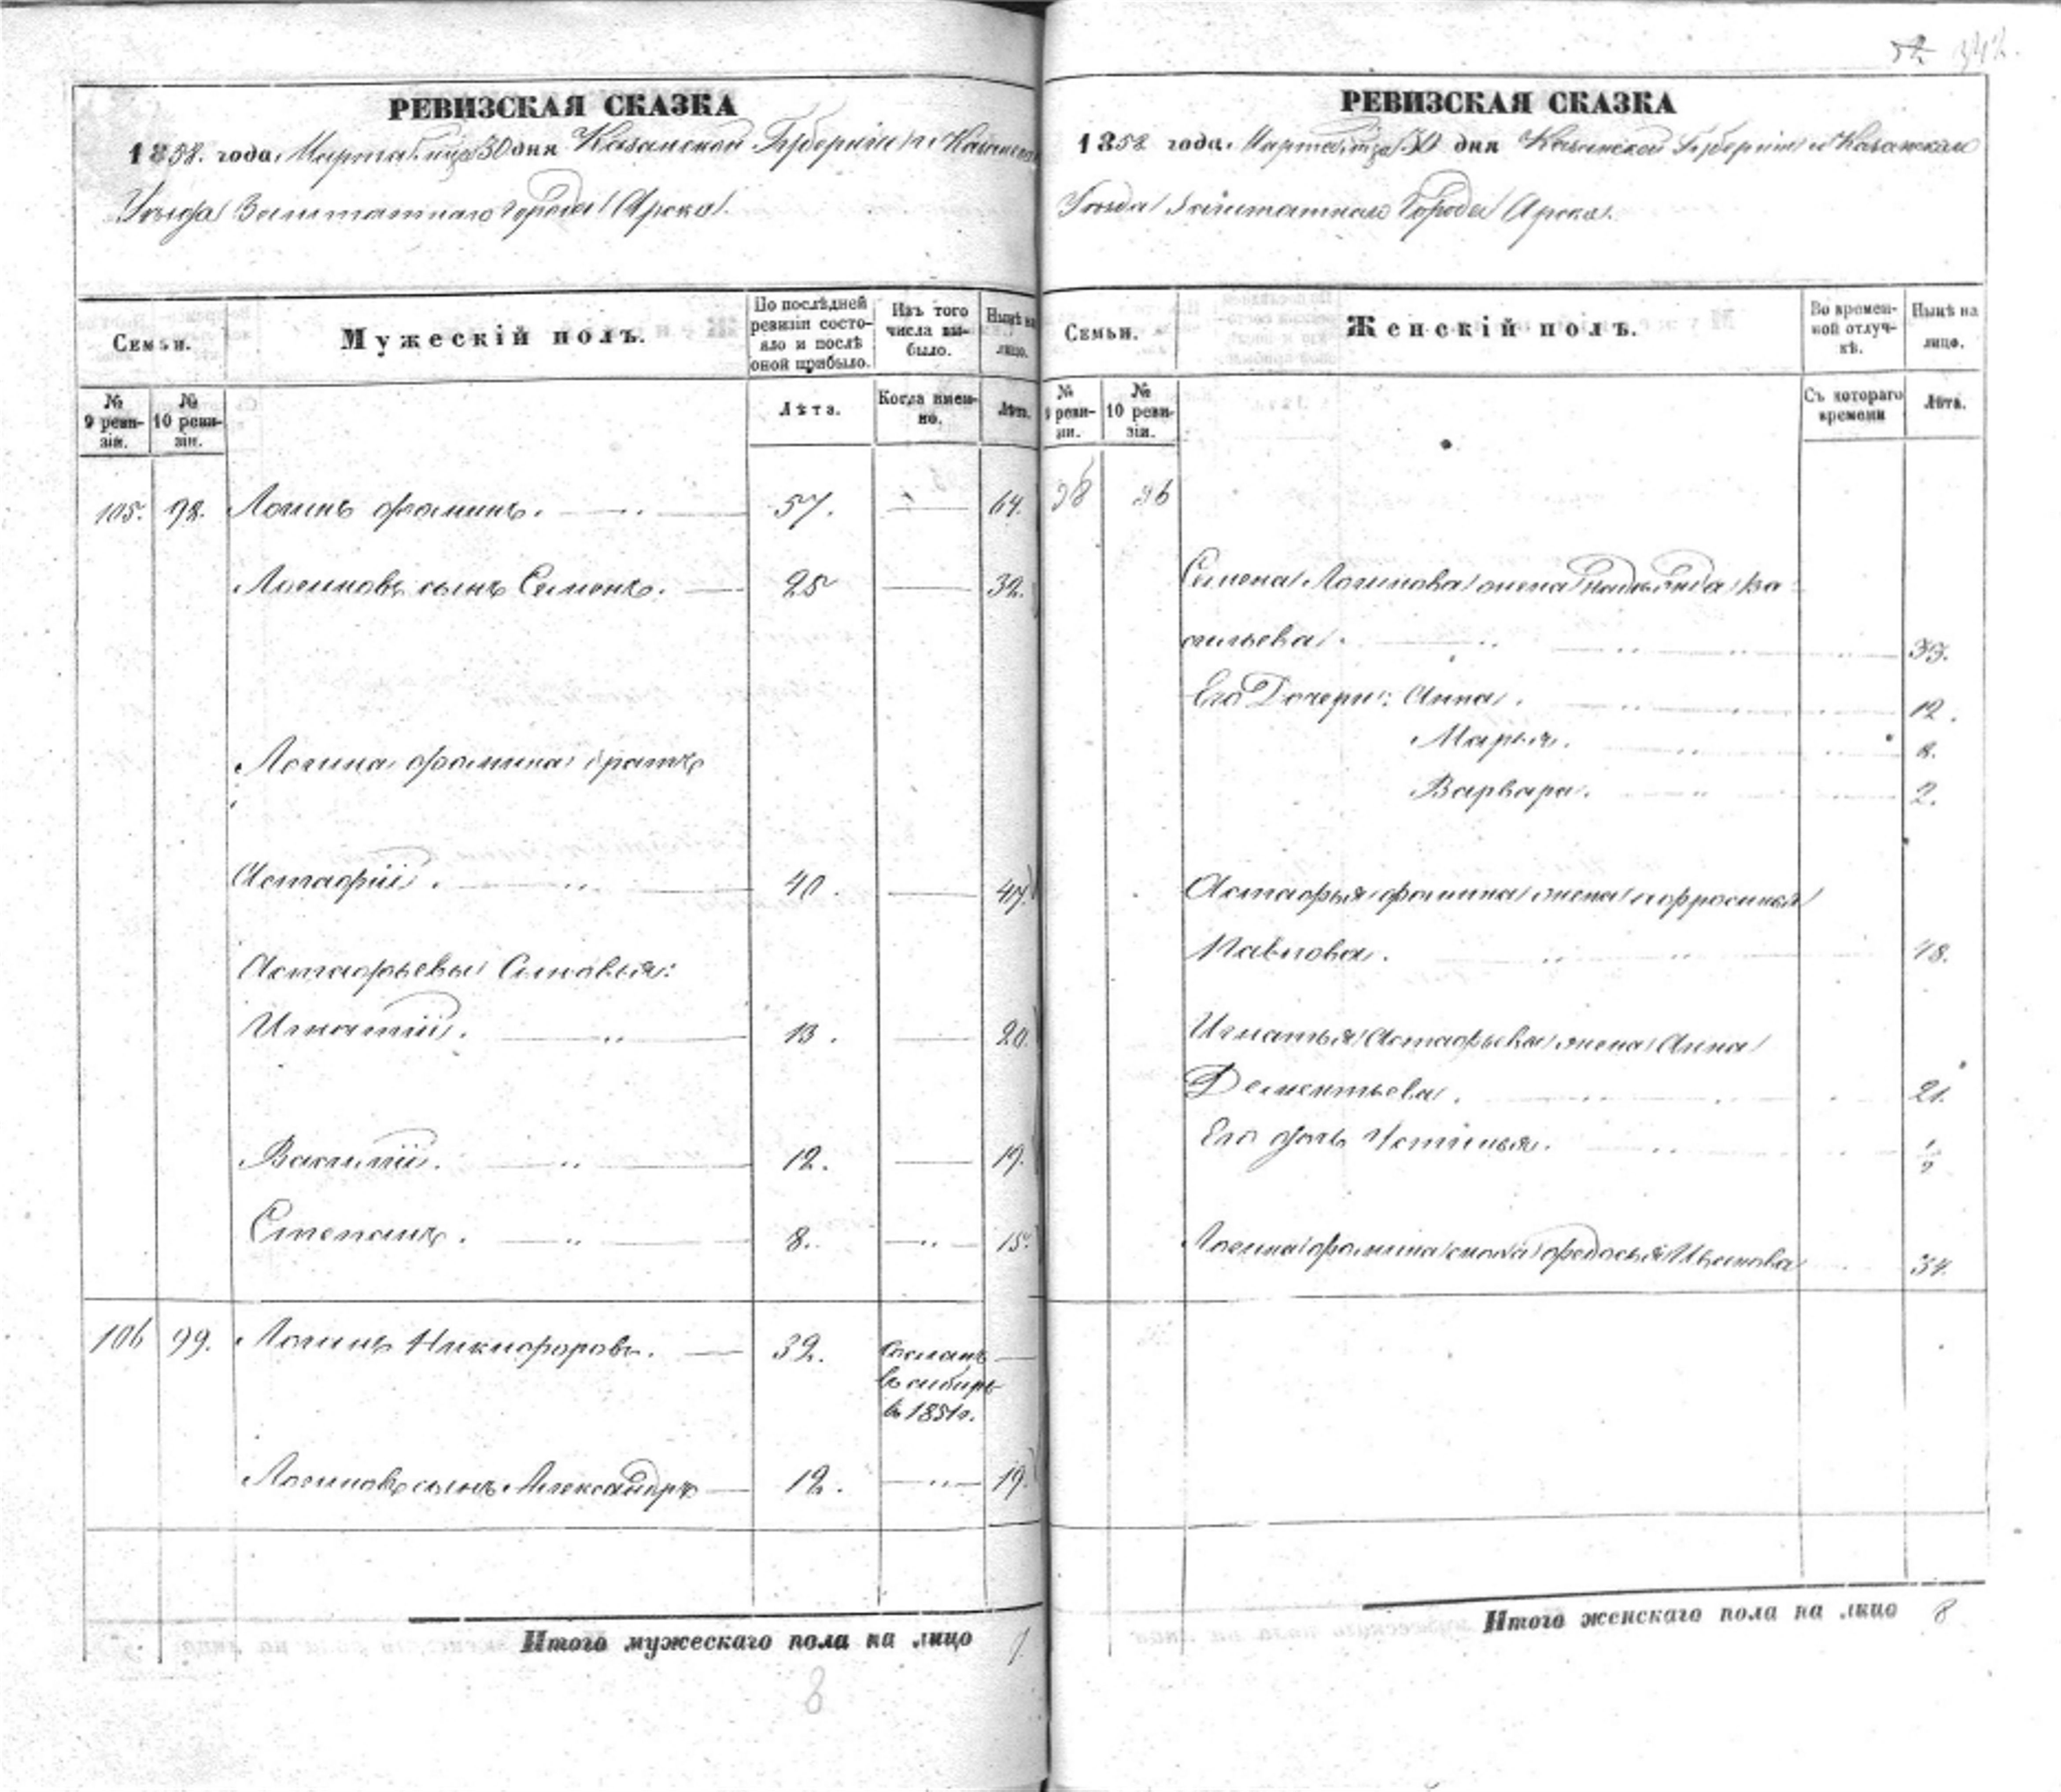 РЕВИЗСКАЯ СКАЗКА
1858. года, Марта м-ца 30 дня Казанской Губерніи и Казанска
Уѣзда Заштатнаго города Арска.
Семьи.
Мужескій полъ.
По послѣдней ревизіи состояло и послѣ оной прибыло.
Изъ того числа выбыло.
Нынѣ на лицо.
№ 9 ревизіи.
№ 10 ревизіи.
Лѣта.
Когда именно.
Лѣта.
105. 98. Логинъ Фоминъ. 57. 64.
Логиновъ сынъ Семенъ. 25 32.
Логина Фомина братъ
Астафій. 40. 47.
Астафьевы Сыновья:
Игнатій. 13. 20.
Василій. 12. 19.
Степанъ. 8. 15.
106 99. Логинъ Никифоровъ. 32. Сосланъ
въ сибирь
въ 1851 г.
Логиновъ сынъ Александръ 12. 19.
Итого мужескаго пола на лицо 7.
8
РЕВИЗСКАЯ СКАЗКА
1858 года. Марта м-ца 30 дня Казанской Губерніи и Казанскаго
Уѣзда Заштатнаго Города Арска.
Семьи.
Женскій полъ.
Во временной отлучкѣ.
Нынѣ на лицо.
№ 9 ревизіи.
№ 10 ревизіи.
Съ котораго времени
Лѣта.
98 96
Семена Логинова жена Ва-
сильева. 33.
Его Дочери: Анна. 12.
Марья. 8.
Варвара. 2.
Астафья Фомина жена Афросинья
Павлова. 48.
Игнатья Астафьева жена Анна
Дементьева. 21.
Его дочь Устинья. 1/2
Логина Фомина сноха Федосья 34.
Итого женскаго пола на лицо 8